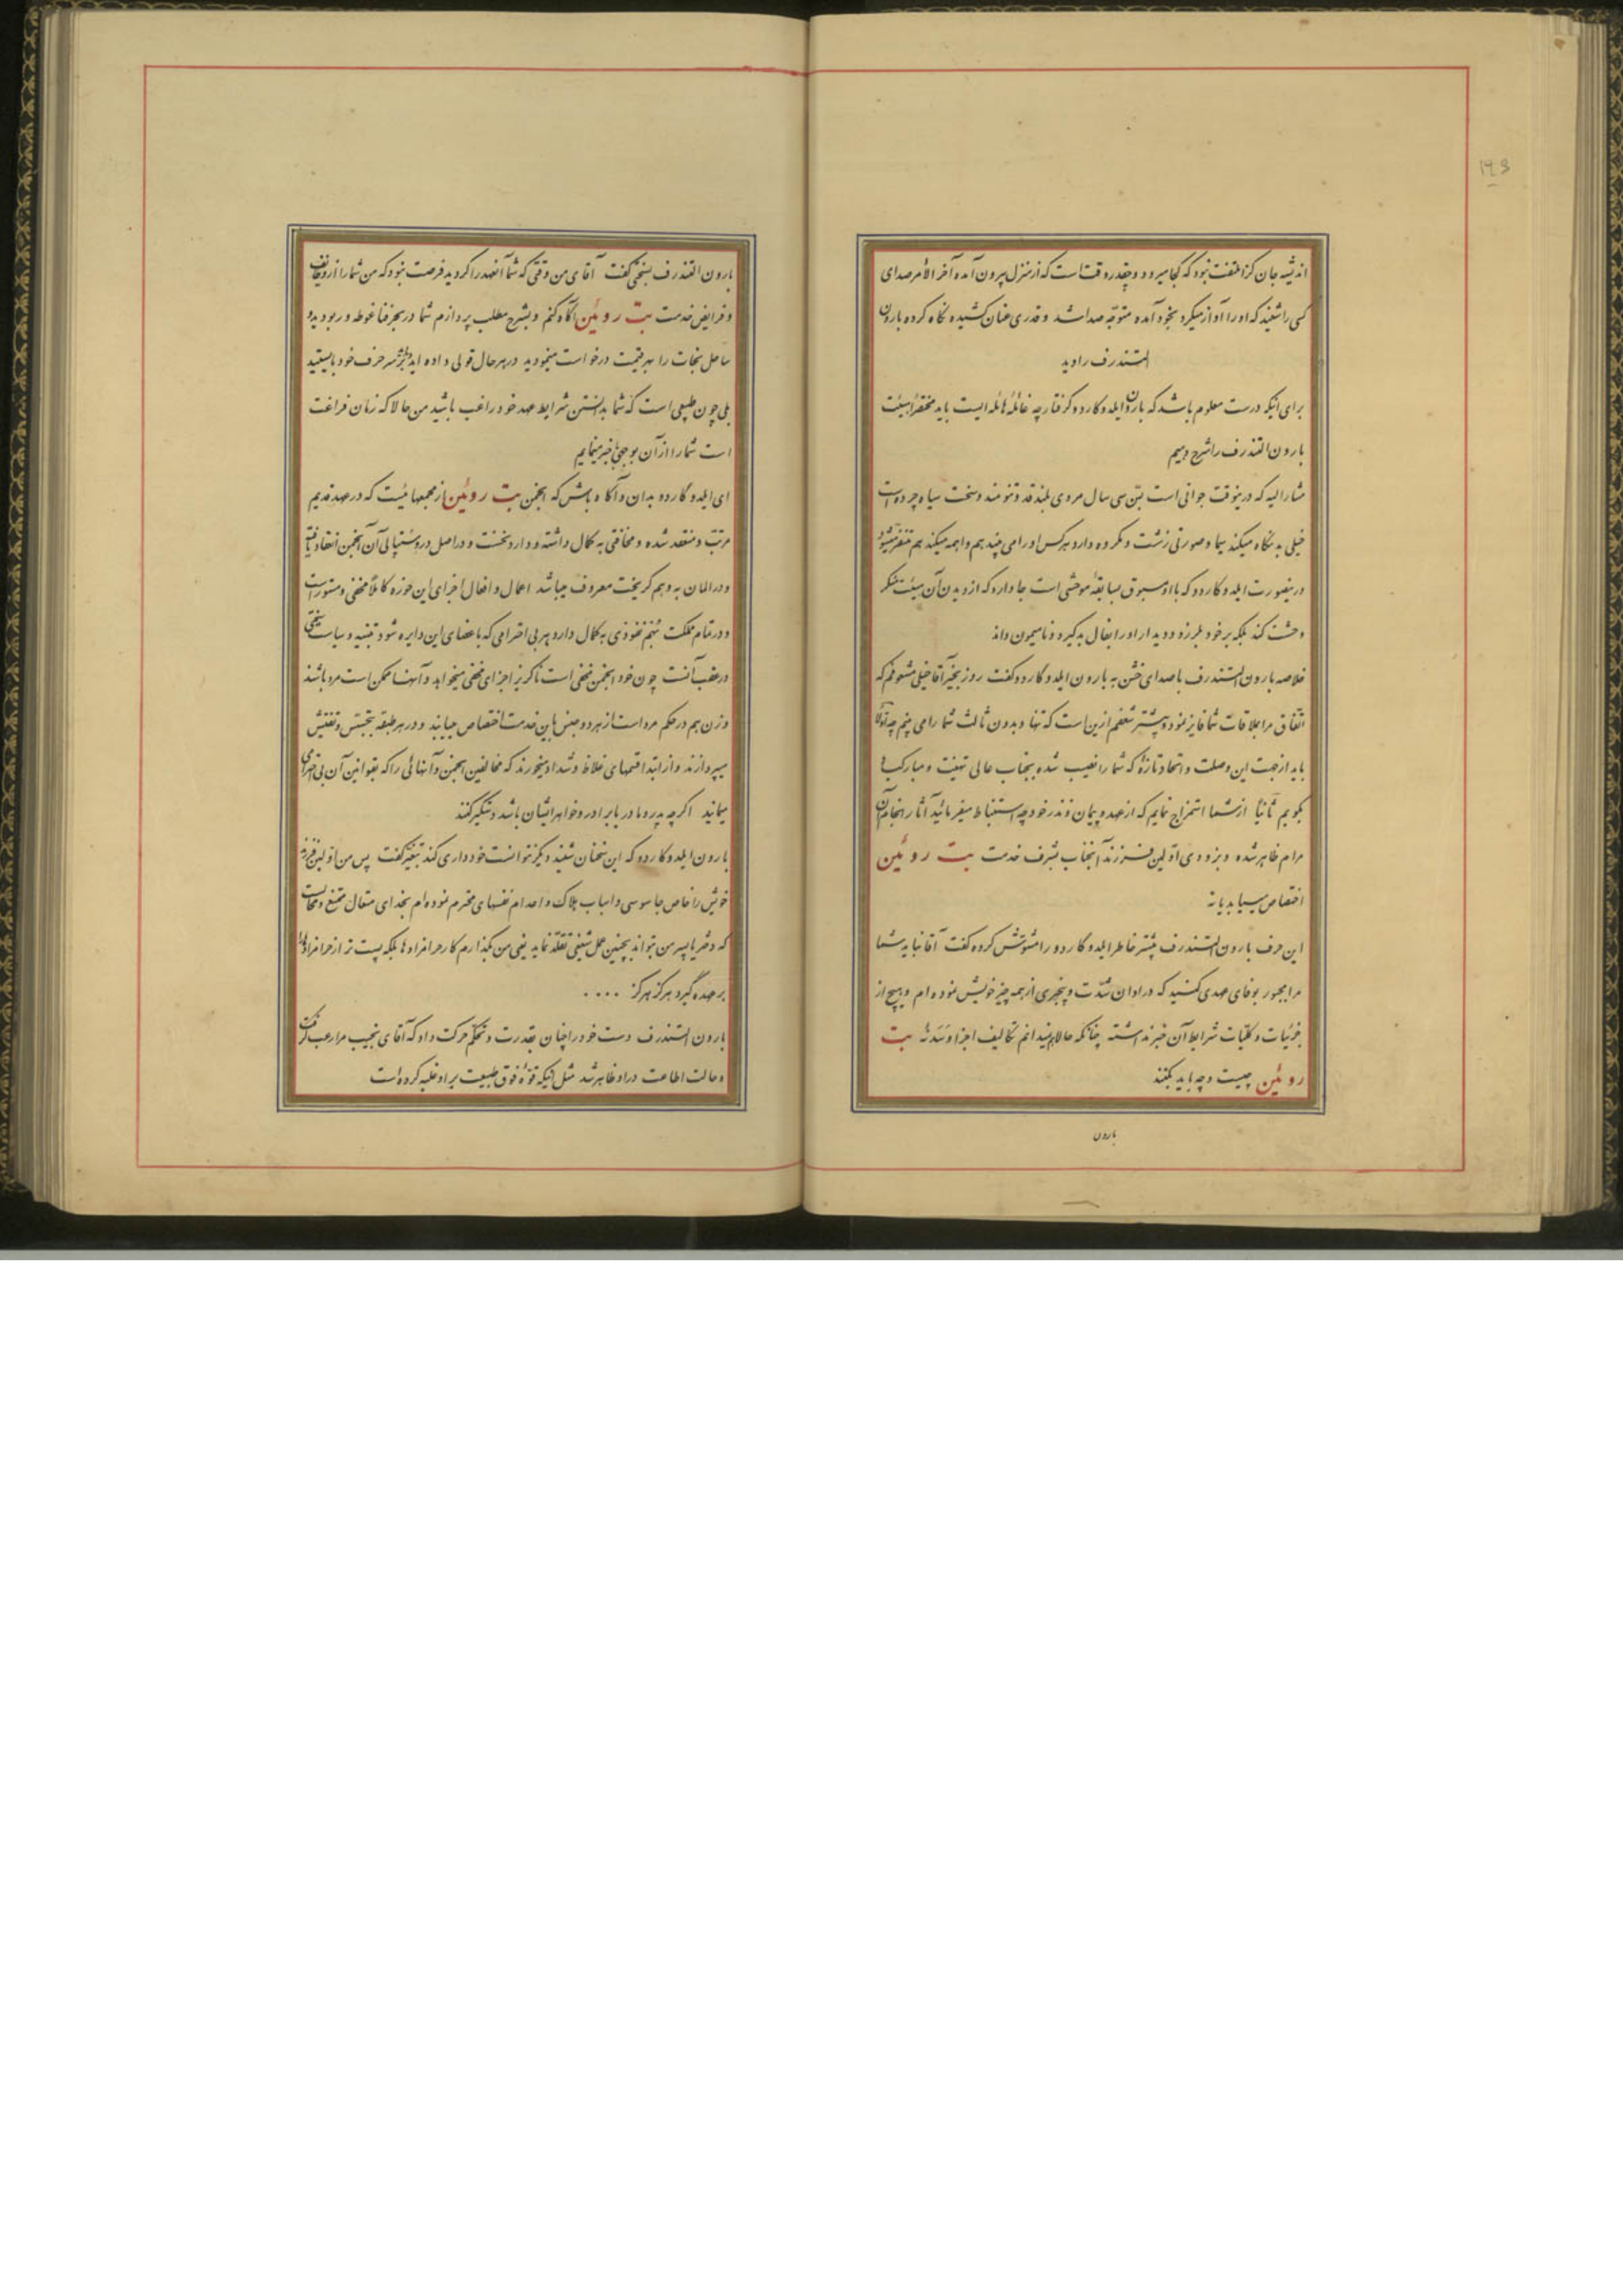 ۱۶۳
اندیشه جان گزا ملتفت نبود که کجا میرود و چقدر وقت است که از منزل بیرون آمده آخر الامر صدای
کسی را شنید که او را آواز میکرد بخود آمده متوجه صدا شد و قدری عنان کشیده نگاه کرده بارون
التندرف را دید
برای اینکه درست معلوم باشد که بارون ایلدوکاردو گرفتار چه غائله هائله ایست باید مختصراً هیئت
بارون التندرف را شرح دهیم
مشارالیه که درینوقت جوانی است بسن سی سال مردی بلند قد و تنومند و سخت سیاه چرده است
خیلی بد نگاه میکند سیما و صورتی زشت و مکروه دارد هرکس او را می بیند هم واهمه میکند هم متنفر میشود
درینصورت ایلدوکاردو که با او مسبوق بسابقهٔ موحشی است جا دارد که از دیدن آن هیئت منکر
وحشت کند بلکه بر خود بلرزد و دیدار او را بفال بد گیرد و نامیمون داند
خلاصه بارون التندرف با صدای خشن به بارون ایلدوگاردو گفت روز بخیر آقا خیلی مشعوفم که
اتفاق مرا بملاقات شما فایز نمود و بیشتر شعفم ازین است که تنها و بدون ثالث شما را می بینم چه اولا
باید از جهت این وصلت و اتحاد تازهٔ که شما را نصیب شده بجناب عالی تهنیت و مبارکباد
بگویم ثانیاً از شما استمزاج نمایم که از عهد و پیمان و نذر خود چه استنباط میفرمائید آثار انجام آن
مرام ظاهر شده و بزودی اولین فرزند آنجناب بشرف خدمت بت روئین
اختصاص مییابد یا نه
این حرف بارون التندرف بیشتر خاطر ایلدوگاردو را مشوش کرده گفت آقا نباید شما
مرا مجبور بوفای عهدی کنید که در اوان شدت و بیخبری از همه چیز خویش نموده ام و هیچ از
جزئیات و کلیات شرایط آن خبر نداشته چنانکه حالا هم نمیدانم تکالیف اجزا و سَدَنهٔ بت
روئین چیست و چه باید بکنند
بارون
بارون التندرف بسختی گفت آقای من وقتی که شما آنعهد را کردید فرصت نبود که من شما را از وظایف
و فرایض خدمت بت روئین آگاه کنم و بشرح مطلب پردازم شما در بحر فنا غوطه ور بودید و
ساحل نجات را بهر قیمت درخواست مینمودید در هر حال قولی داده اید بر سر حرف خود بایستید
بلی چون طبیعی است که شما بدانستن شرایط عهد خود راغب باشید من حالا که زمان فراغت
است شما را از آن بوجهی باخبر مینمایم
ای ایلدوگاردو بدان و آگاه باش که انجمن بت روئین از مجمعهائیست که در عهد قدیم
مرتب و منعقد شده و مخافتی به کمال داشته و دارد نخست و در اصل در وستپالی آن انجمن انعقاد یافته
و در المان به وهم گریخت معروف میباشد اعمال و افعال اجزای این حوزه کاملاً مخفی و مستور است
و در تمام مملکت نفوذی به کمال دارد هر بی احترامی که باعضای این دایره شود تنبیه و سیاست سختی
در عقب آنست چون خود انجمن مخفی است ناگزیر اجزای مخفی میخواهد و آنها ممکن است مرد باشند
و زن هم در حکم مرد است از هر دو جنس باین خدمت اختصاص مییابند و در هر طبقه بتجسس و تفتیش
میپردازند و از ابتدا قسمهای غلاظ و شداد میخورند که مخالفین انجمن و آنهائی را که بقوانین آن بی احترامی
مینمایند اگر چه پدر و مادر یا برادر و خواهر ایشان باشد دستگیر کنند
بارون ایلدوکاردو که این سخنان شنید دیگر نتوانست خودداری کند بتغیر گفت پس من اولین فرزند
خویش را خاص جاسوسی و اسباب هلاک و اعدام نفسهای محترم نموده ام بخدای متعال ممتنع و محالست
که دختر یا پسر من بتواند بچنین عمل شنیعی تقلد نماید یعنی من بگذارم کار حرامزاده ها بلکه پست تر از حرامزاده ها را
بر عهده گیرد هرگز هرگز ....
بارون التندرف دست خود را چنان بقدرت و تحکم حرکت داد که آقای نجیب ما را رعب گرفت
و حالت اطاعت در او ظاهر شد مثل اینکه قوهٔ فوق طبیعت بر او غلبه کرده است